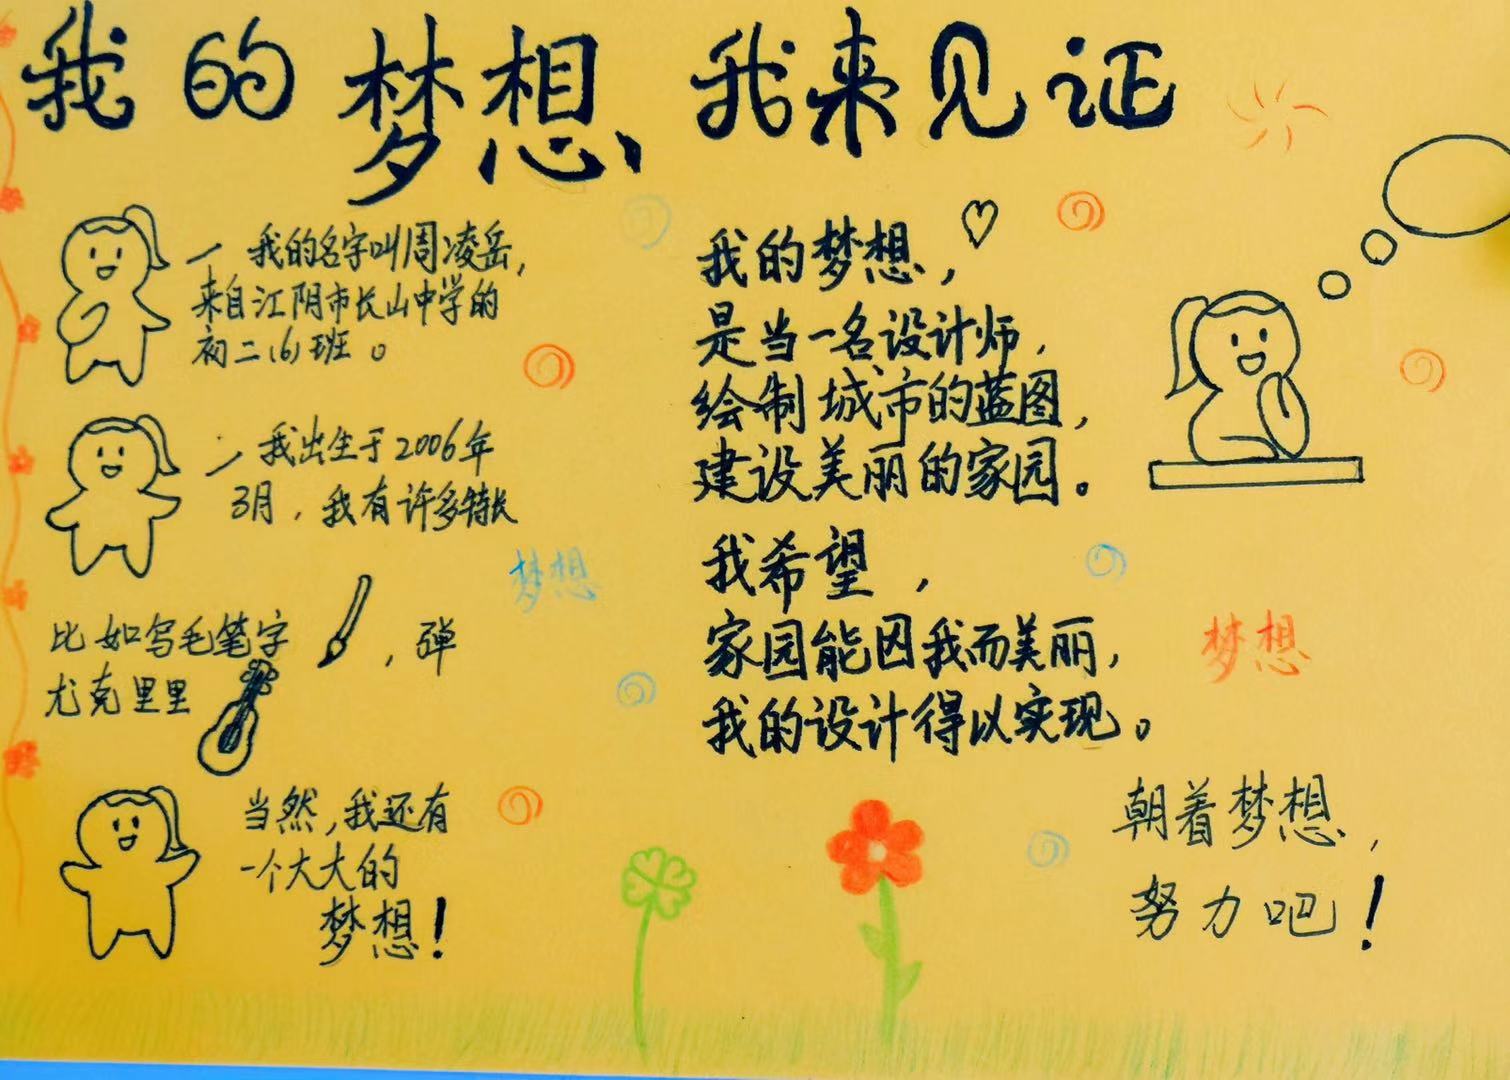 我的梦想、我来见证
一 我的名字叫周凌岳，
来自江阴市长山中学的
初二(6)班。
一、我出生于2006年
3月，我有许多特长
比如写毛笔字，弹
尤克里里
当然，我还有
一个大大的
梦想！
梦想
我的梦想，
是当一名设计师，
绘制城市的蓝图，
建设美丽的家园。
我希望，
家园能因我而美丽，
我的设计得以实现。
梦想
朝着梦想，
努力吧！